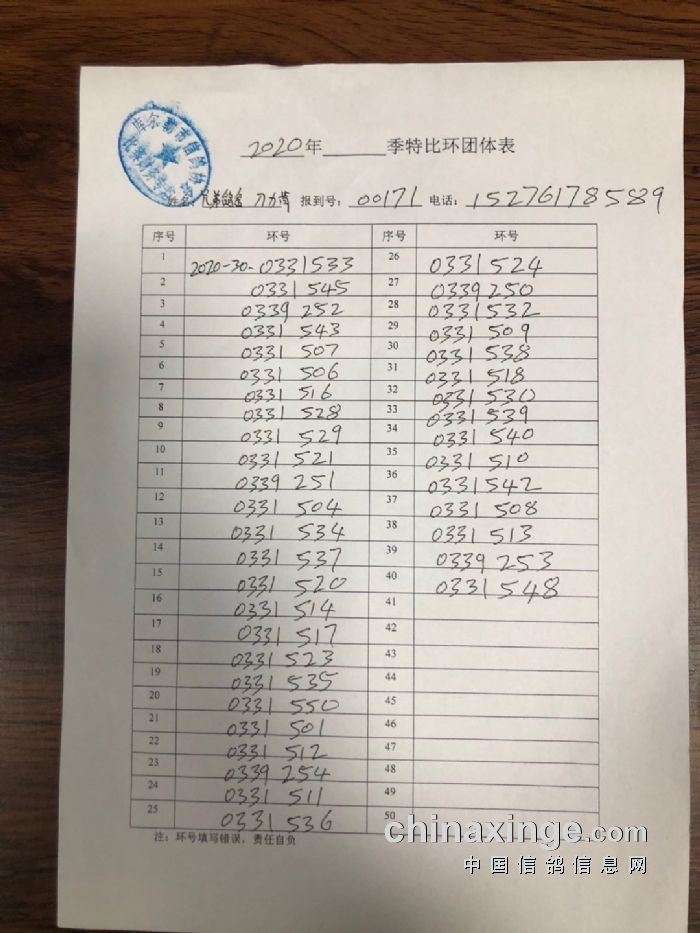 库尔勒市信鸽协会
2020年 季特比环团体表
姓名: 兄弟鸽舍 报到号: 00171 电话: 15276178589
序号 环号 序号 环号
1 2020-30-0331533 26 0331524
2 0331 545 27 0339250
3 0339 252 28 0331532
4 0331 543 29 0331 509
5 0331 507 30 0331 538
6 0331 506 31 0331 518
7 0331 516 32 0331 530
8 0331 528 33 0331 539
9 0331 529 34 0331 540
10 0331 521 35 0331 510
11 0339 251 36 0331542
12 0331 504 37 0331 508
13 0331 534 38 0331 513
14 0331 537 39 0339 253
15 0331 520 40 0331 548
16 0331 514 41
17 0331 517 42
18 0331 523 43
19 0331 535 44
20 0331 550 45
21 0331 501 46
22 0331 512 47
23 0339 254 48
24 0331 511 49
25 0331 536 50
注: 环号填写错误, 责任自负
chinaxinge.com
中国信鸽信息网